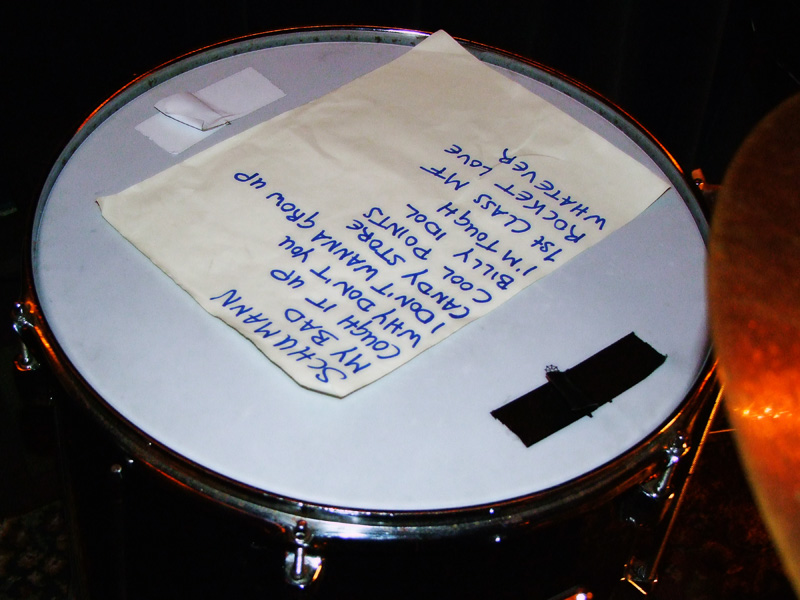 SCHUMANN
MY BAD
COUGH IT UP
WHY DON'T YOU
I DON'T WANNA GROW UP
CANDY STORE
COOL POINTS
BILLY IDOL
I'M TOUGH
1st CLASS MF
ROCKET LOVE
WHATEVER